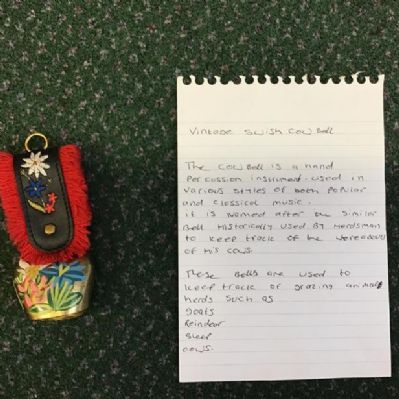 Vintage Swish Cow Bell
The Cow Bell is a hand
percussion instrument used in
various styles of both popular
and classical music.
it is named after the similar
Bell Historically used By Herdsman
to keep track of the whereabouts
of His cows.
These Bells are used to
keep track of grazing animals
herds such as
Goats
Reindeer
Sheep
cows.